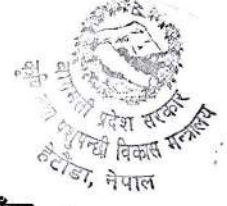 बागमती प्रदेश सरकार
तथा पशुपन्छी विकास मन्त्रालय
हेटौंडा, नेपाल